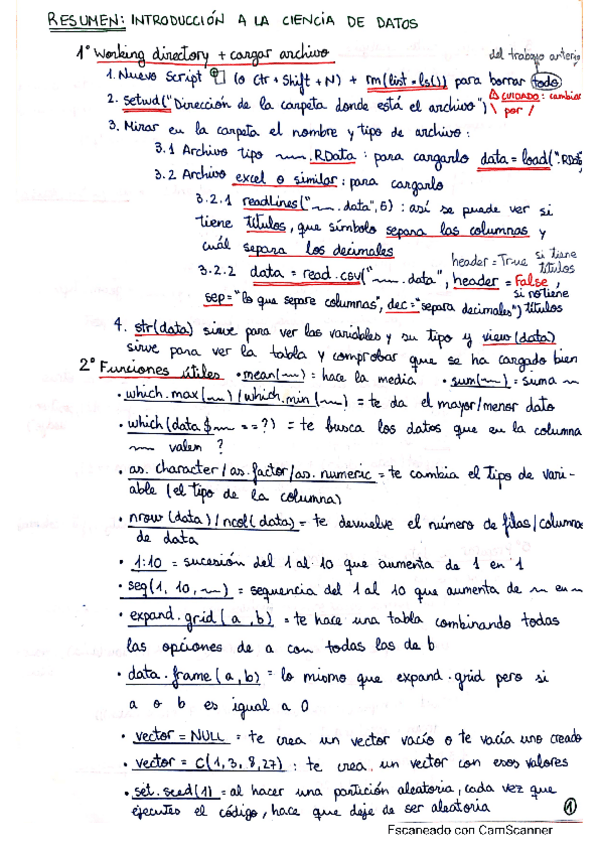 RESUMEN: INTRODUCCIÓN A LA CIENCIA DE DATOS
1º Working directory + cargar archivo
del trabajo anterio
1. Nuevo Script (o Ctr + Shift + N) + rm(list=ls()) para borrar todo
2. setwd("Dirección de la carpeta donde está el archivo") \ por /
CUIDADO: cambiar
3. Mirar en la carpeta el nombre y tipo de archivo:
3.1 Archivo tipo ~.RData: para cargarlo data = load(".RDa
3.2 Archivo excel o similar: para cargarlo
3.2.1 readlines("~.data", 5): así se puede ver si
tiene títulos, que símbolo separa las columnas y
cuál separa los decimales
header = True si tiene títulos
3.2.2 data = read.csv("~.data", header = False,
si no tiene títulos
sep = "lo que separe columnas", dec = "separa decimales")
4. str(data) sirve para ver las variables y su tipo y view(data)
sirve para ver la tabla y comprobar que se ha cargado bien
2º Funciones útiles • mean(~) = hace la media • sum(~) = suma ~
• which.max(~) / which.min(~) = te da el mayor/menor dato
• which(data$~ == ?) = te busca los datos que en la columna
~ valen ?
• as.character/as.factor/as.numeric = te cambia el tipo de vari-
able (el tipo de la columna)
• nrow(data) / ncol(data) = te devuelve el número de filas/columna
de data
• 1:10 = sucesión del 1 al 10 que aumenta de 1 en 1
• seq(1, 10, ~) = sequencia del 1 al 10 que aumenta de ~ en ~
• expand.grid(a, b) = te hace una tabla combinando todas
las opciones de a con todas las de b
• data.frame(a, b) = lo mismo que expand.grid pero si
a o b es igual a 0
• vector = NULL = te crea un vector vacío o te vacía uno creado
• vector = c(1, 3, 8, 27): te crea un vector con esos valores
• set.seed(1) = al hacer una partición aleatoria, cada vez que
ejecutes el código, hace que deje de ser aleatoria
1
Escaneado con CamScanner